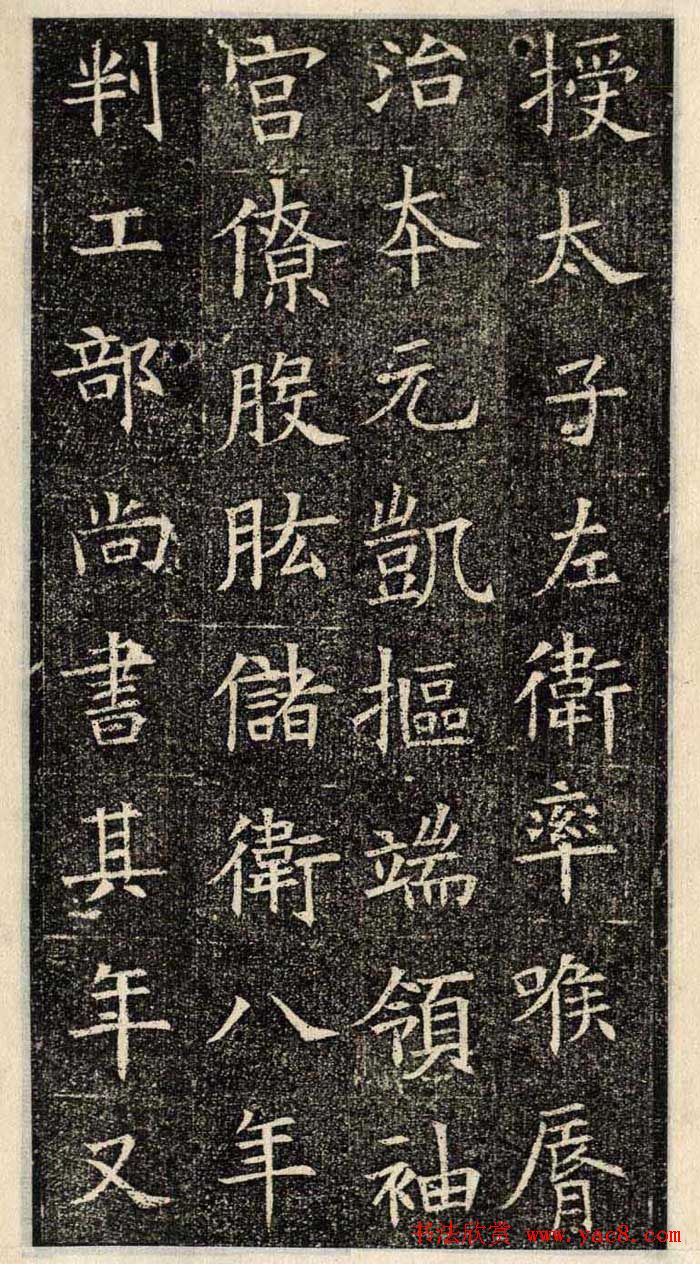 授太子左衛率喉脣
治本元凱摳端領袖
官僚股肱儲衛八年
判工部尚書其年又
书法欣赏 www.yac8.com